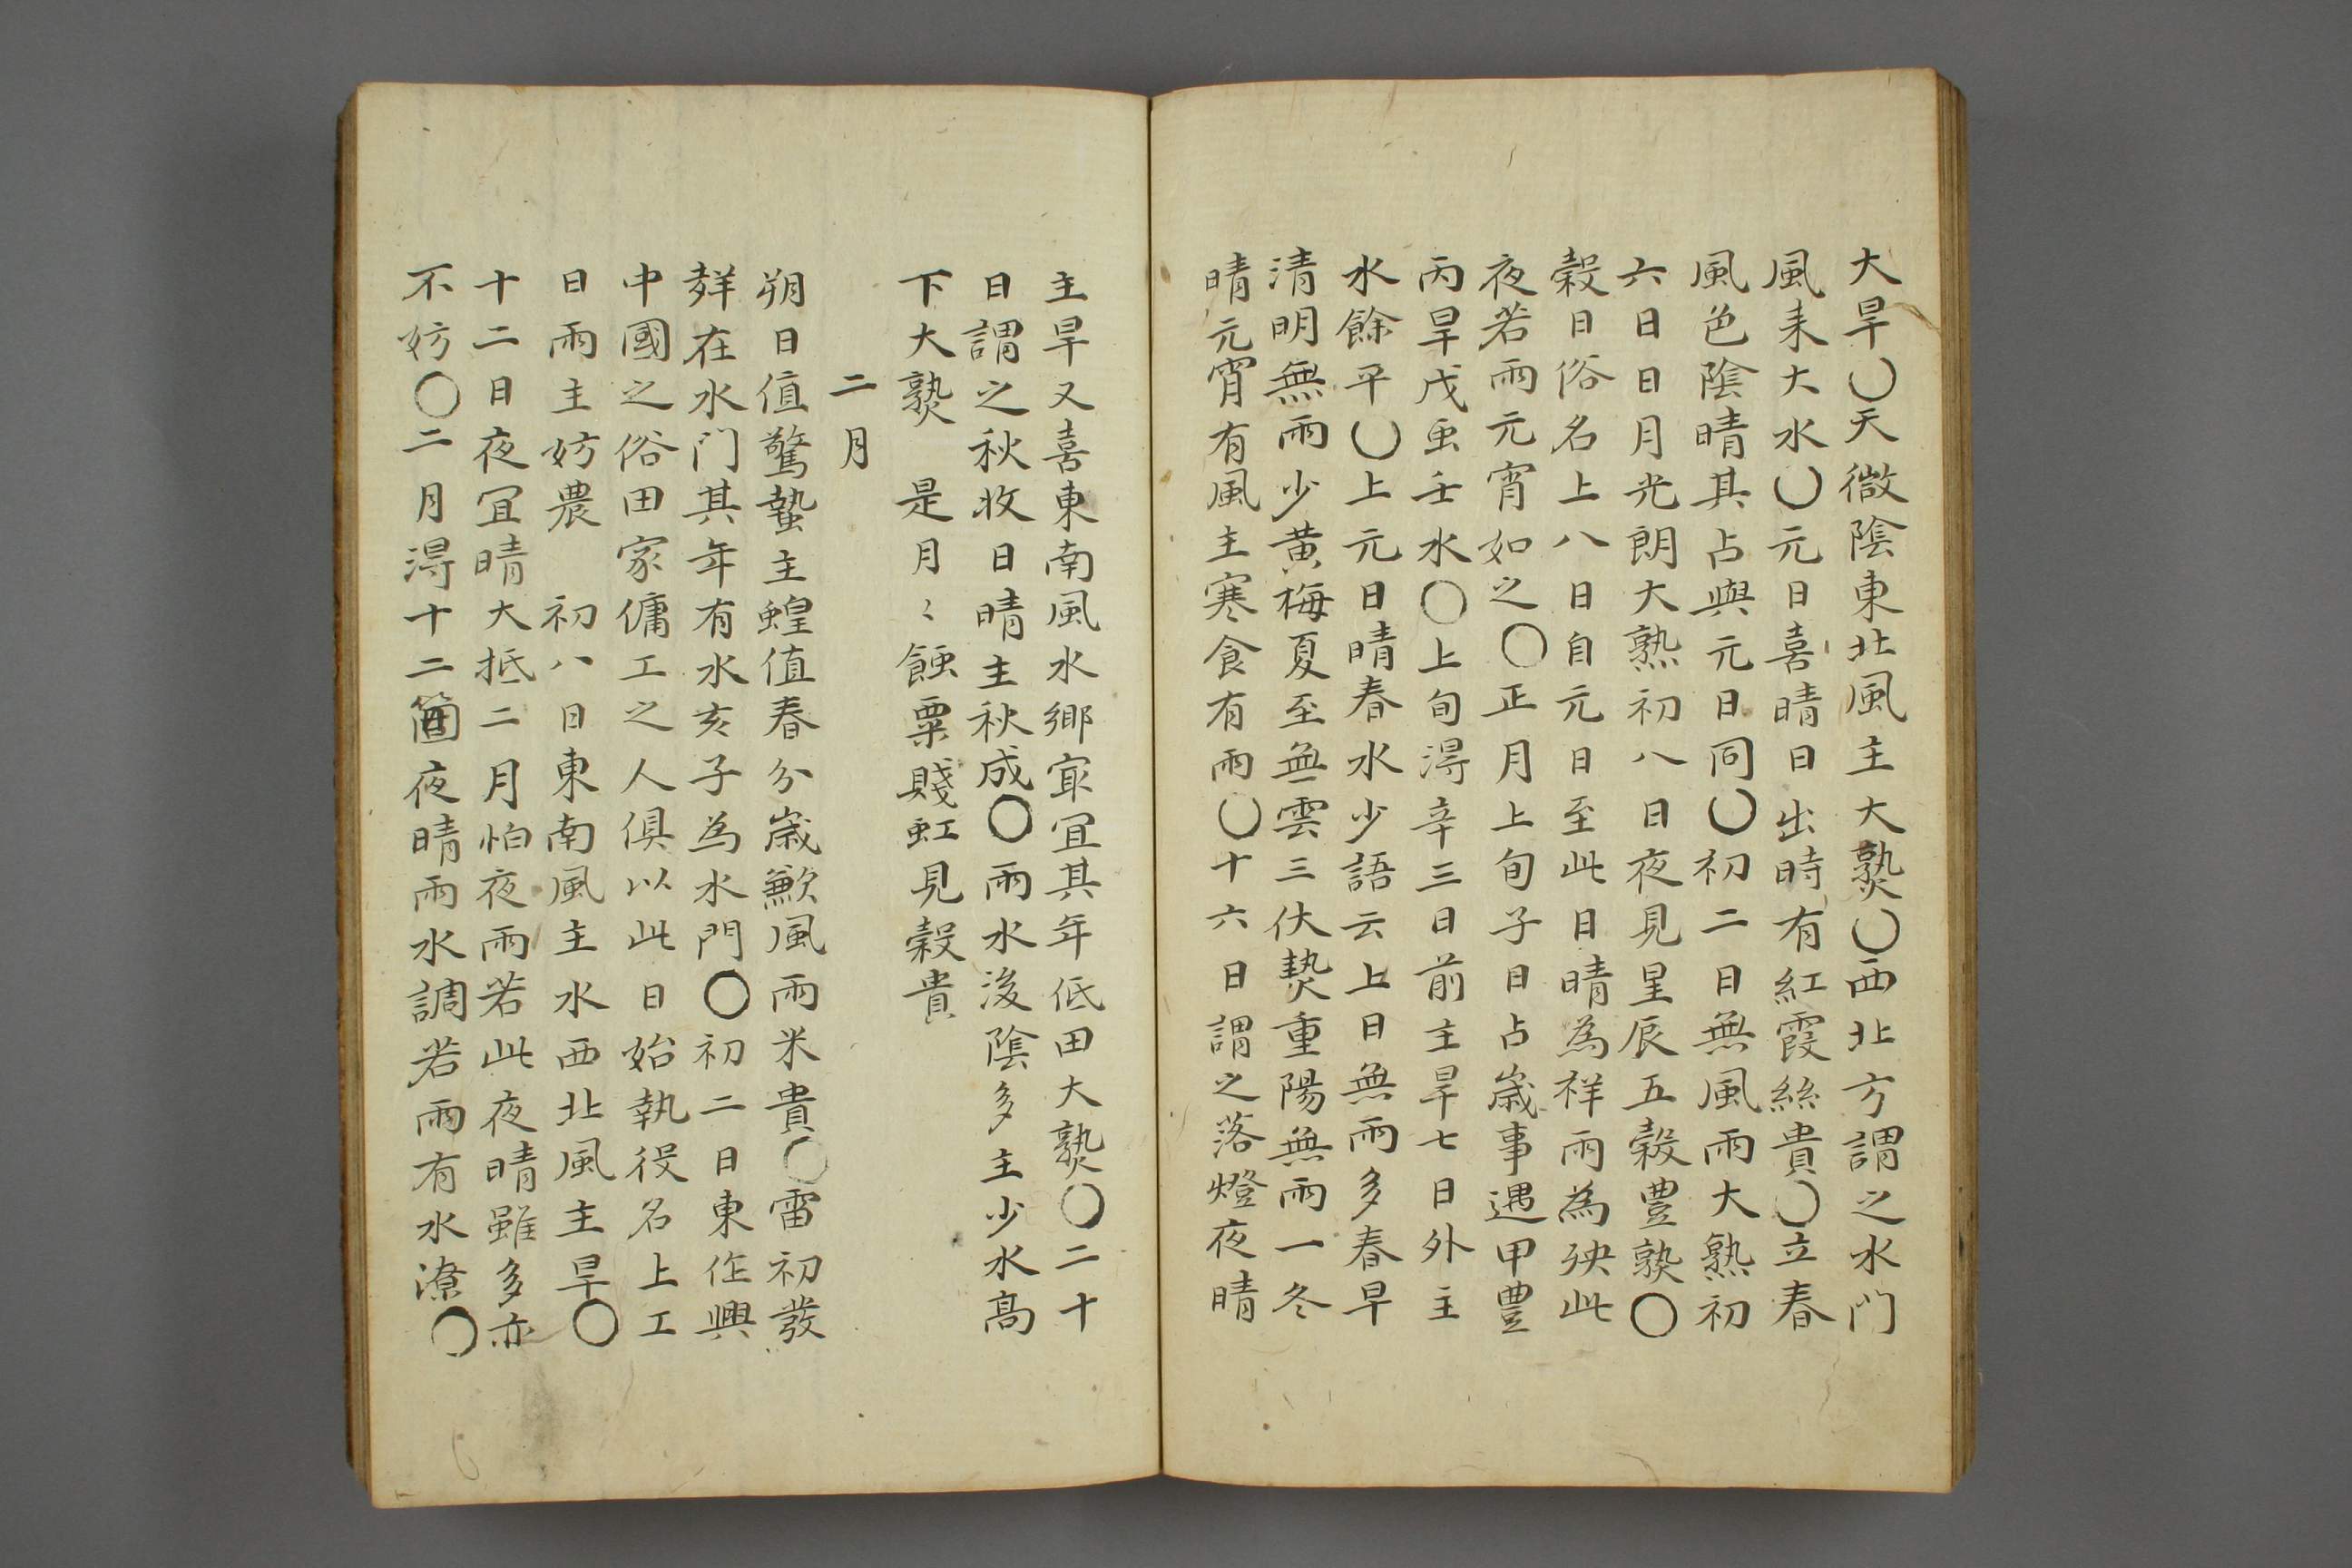 大旱〇天微陰東北風主大熟〇西北方謂之水门
風来大水〇元日喜晴日出時有紅霞絲貴〇立春
風色陰晴其占與元日同〇初二日無風雨大熟初
六日日月光朗大熟初八日夜見星辰五穀豊熟〇
穀日俗名上八日自元日至此日晴為祥雨為殃此
夜若雨元宵如之〇正月上旬子日占歳事遇甲豊
丙旱戊虫壬水〇上旬淂辛三日前主旱七日外主
水餘平〇上元日晴春水少語云上日無雨多春旱
清明無雨少黄梅夏至無雲三伏熱重陽無雨一冬
晴元宵有風主寒食有雨〇十六日謂之落燈夜晴
主旱又喜東南風水郷㝡冝其年低田大熟〇二十
日謂之秋收日晴主秋成〇雨水後陰多主少水高
下大熟　是月〻蝕粟賤虹見穀貴
二月
朔日值驚蟄主蝗值春分歳歉風雨米貴〇雷初發
辳在水门其年有水亥子為水門〇初二日東作興
中國之俗田家傭工之人俱以此日始執役名上工
日雨主妨農　初八日東南風主水西北風主旱〇
十二日夜冝晴大抵二月怕夜雨若此夜晴雖多亦
不妨〇二月淂十二箇夜晴雨水調若雨有水潦〇